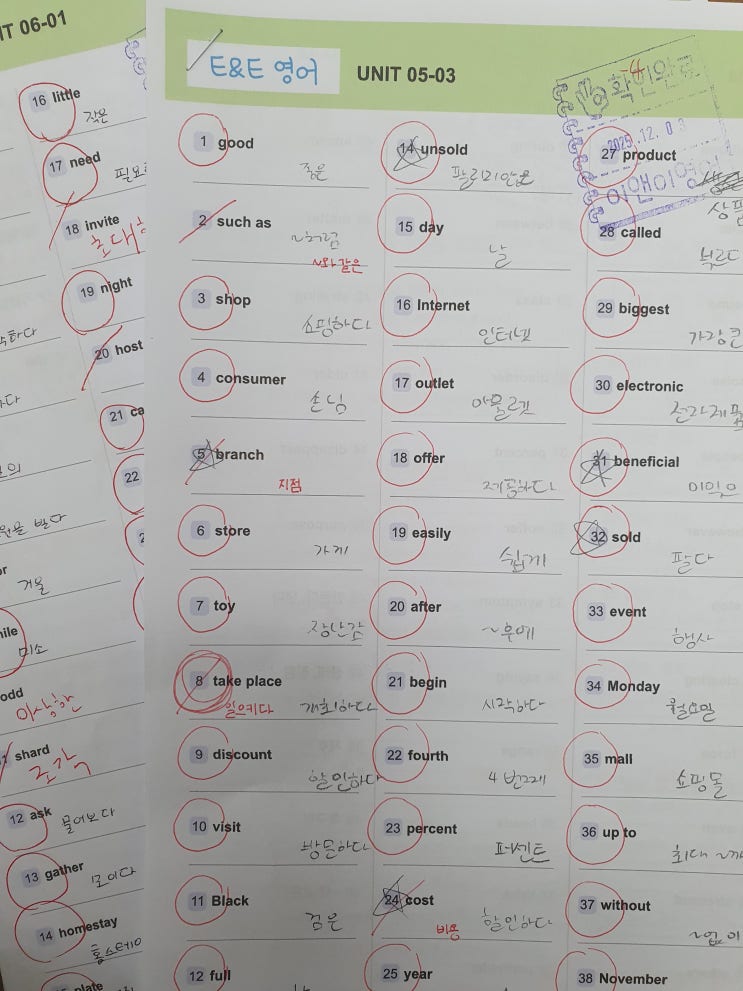 IT 06-01
16 little
작은
17 need
18 invite
19 night
20 host
21 ca
22
거울
미소
odd
이상한
shard
조각
12 ask
물어보다
13 gather
모이다
14 homestay
홈스테이
E&E 영어
UNIT 05-03
-4
2025.12.0
이앤이영
1 good
좋은
2 such as
~처럼
~와 같은
3 shop
쇼핑하다
4 consumer
손님
5 branch
지점
6 store
가게
7 toy
장난감
8 take place
일으키다 개최하다
9 discount
할인하다
10 visit
방문하다
11 Black
검은
12 full
14 unsold
팔리지않은
15 day
날
16 Internet
인터넷
17 outlet
아울렛
18 offer
제공하다
19 easily
쉽게
20 after
~후에
21 begin
시작하다
22 fourth
4번째
23 percent
퍼센트
24 cost
비용 할인하다
25 year
27 product
상품
28 called
부르다
29 biggest
가장 큰
30 electronic
전자제품
31 beneficial
32 sold
팔다
33 event
행사
34 Monday
월요일
35 mall
쇼핑몰
36 up to
최대 ~까
37 without
~없이
38 November